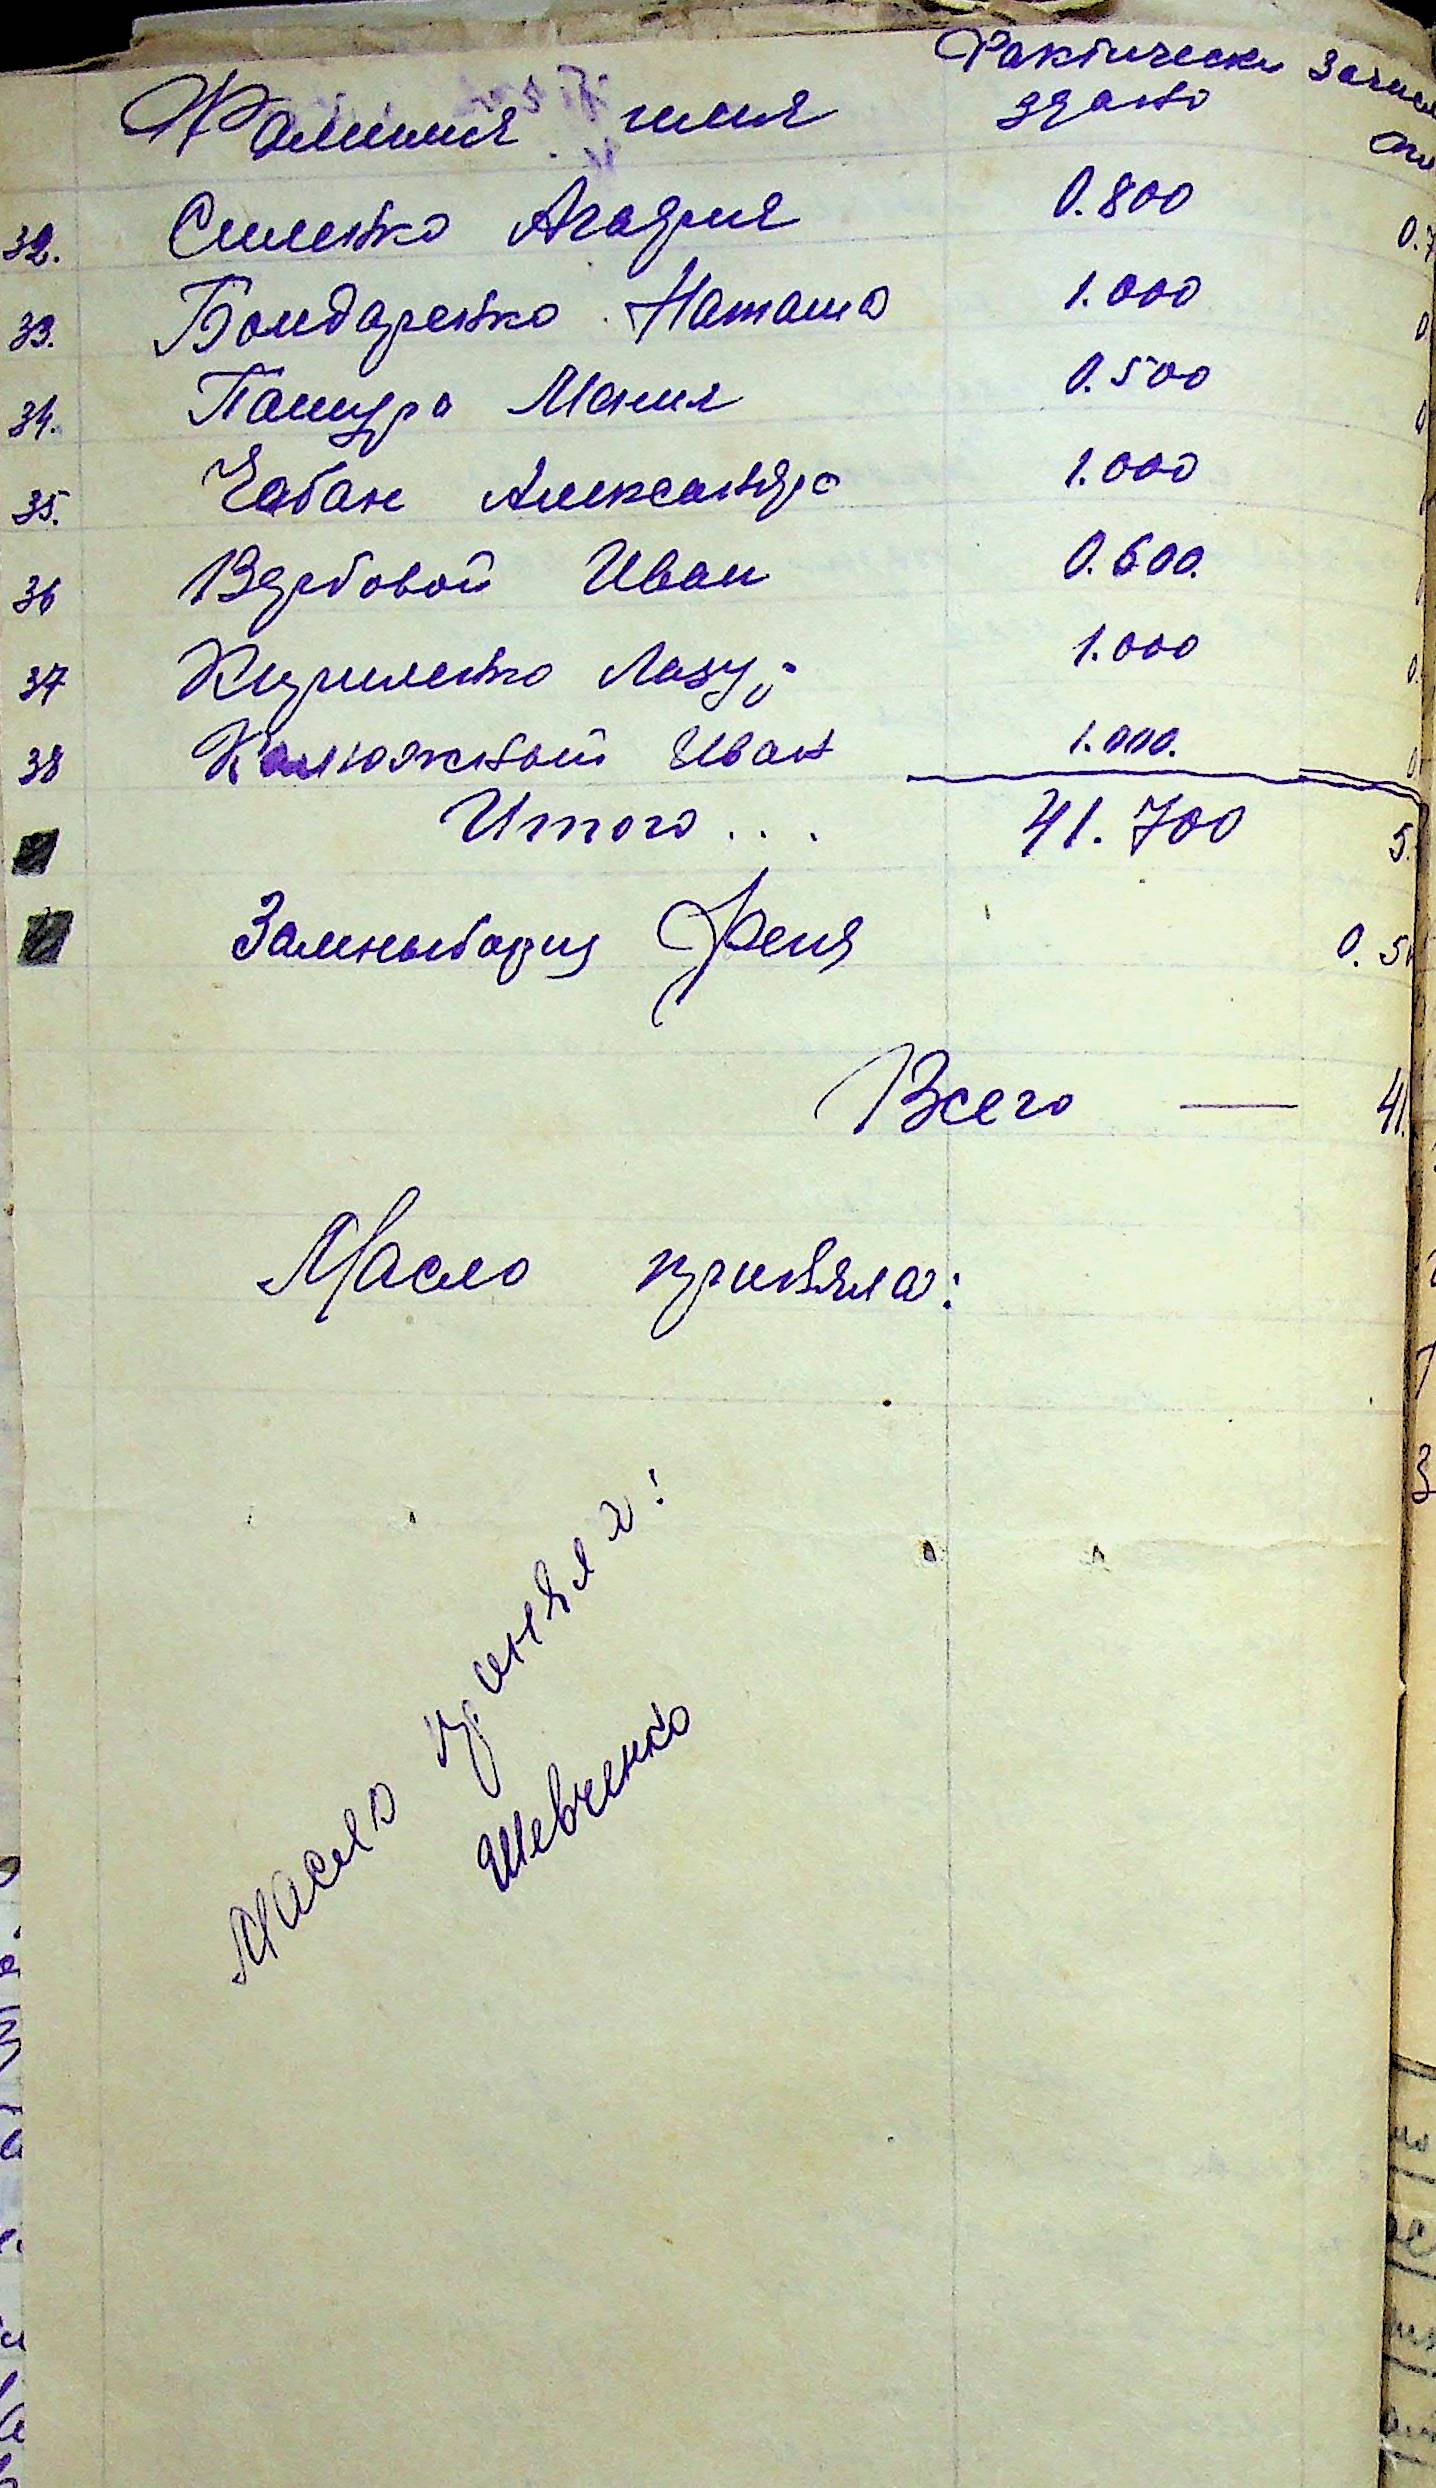 Фамилия имя Фактически здано
32. Силенко Агафия 0.800
33. Бондаренко Наташа 1.000
34. Пащура Мания 0.500
35. Чабан Александра 1.000
36 Вербовой Иван 0.600.
37 Кириленко 1.000
38 Калюжный Иван 1.000.
Итого . . . 41.700
Феня
Всего —
Масло приняла:
Масло приняла:
Шевченко